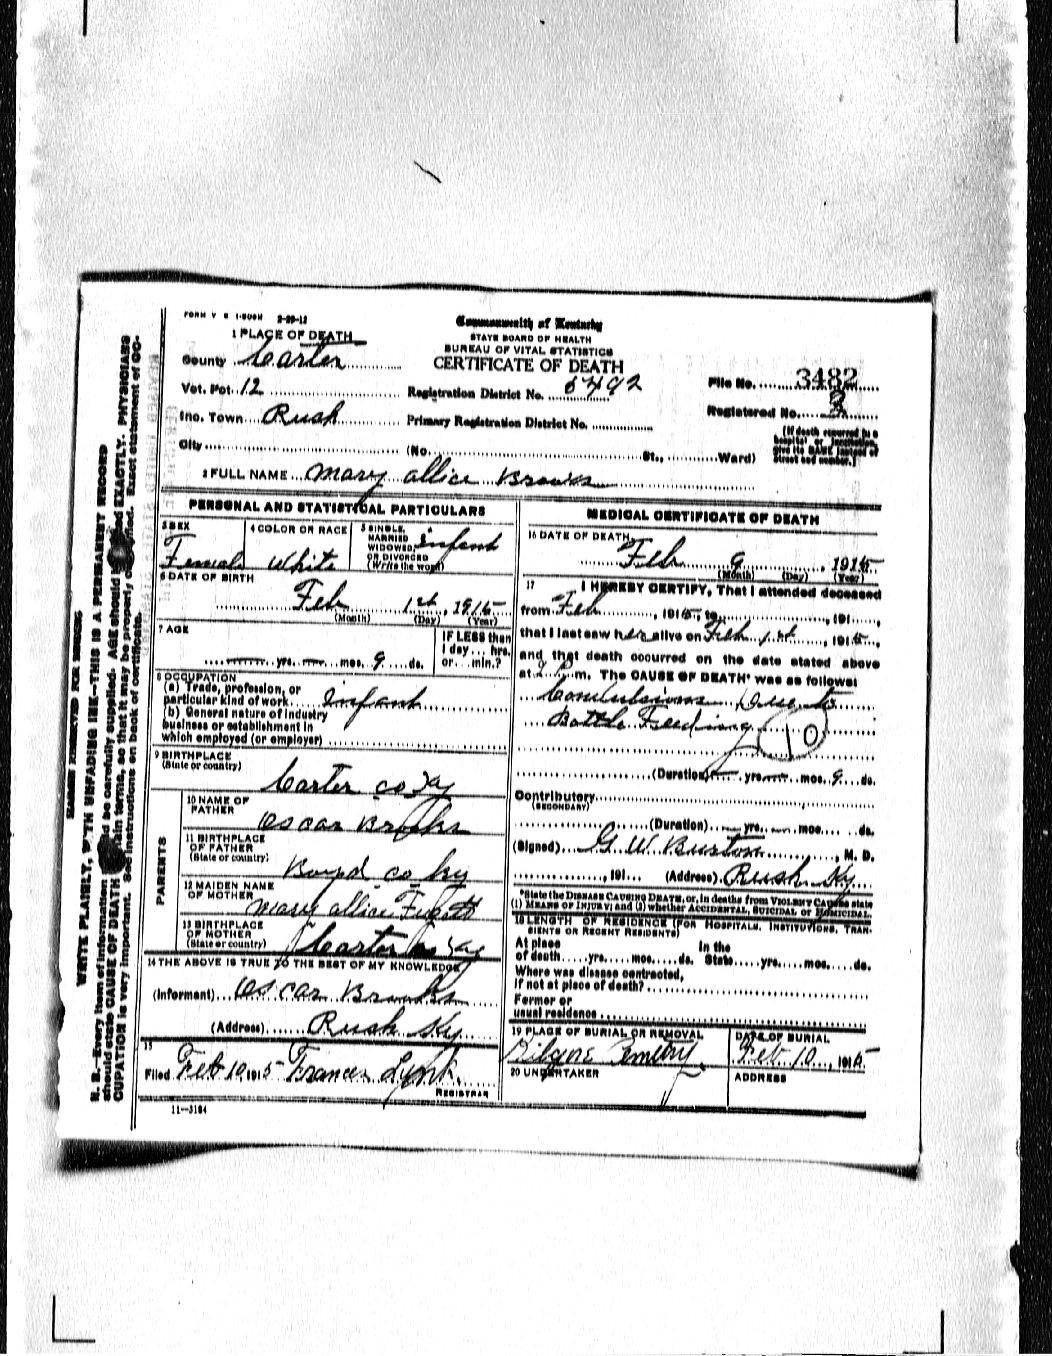 FORM V S 1-50M 2-29-12
Commonwealth of Kentucky
STATE BOARD OF HEALTH
BUREAU OF VITAL STATISTICS
CERTIFICATE OF DEATH
1 PLACE OF DEATH
County Carter
Vot. Pct. 12
Registration District No. 5492
File No. 3482
Inc. Town Rush
Primary Registration District No.
Registered No. 3
City (No. St., Ward)
[If death occurred in a hospital or institution, give its NAME instead of street and number.]
2 FULL NAME Mary Allice Brooks
PERSONAL AND STATISTICAL PARTICULARS
3 SEX Female
4 COLOR OR RACE White
5 SINGLE, MARRIED, WIDOWED, OR DIVORCED (Write the word) Infant
6 DATE OF BIRTH
Feb 1st, 1915
(Month) (Day) (Year)
7 AGE
yrs. mos. 9 ds.
IF LESS than 1 day hrs. or min.?
8 OCCUPATION
(a) Trade, profession, or particular kind of work Infant
(b) General nature of industry business or establishment in which employed (or employer)
9 BIRTHPLACE
(State or country)
Carter co Ky
PARENTS
10 NAME OF FATHER
Oscar Brooks
11 BIRTHPLACE OF FATHER
(State or country)
Boyd co ky
12 MAIDEN NAME OF MOTHER
Mary allice Fugett
13 BIRTHPLACE OF MOTHER
(State or country)
Carter co Ky
14 THE ABOVE IS TRUE TO THE BEST OF MY KNOWLEDGE
(Informant) Oscar Brooks
(Address) Rush Ky
15
Filed Feb 10 1915 Frances Lynk.
REGISTRAR
11-3184
MEDICAL CERTIFICATE OF DEATH
16 DATE OF DEATH
Feb 9, 1915
(Month) (Day) (Year)
17 I HEREBY CERTIFY, That I attended deceased
from Feb, 1915, to, 191,
that I last saw her alive on Feb 1st, 1915,
and that death occurred on the date stated above
at 2 P.m. The CAUSE OF DEATH* was as follows:
Convulsions Due to
Bottle Feeding
10
(Duration) yrs. mos. 9 ds.
Contributory
(SECONDARY)
(Duration) yrs. mos. ds.
(Signed) G W Burton, M. D.
, 191 (Address) Rush Ky
*State the DISEASE CAUSING DEATH, or, in deaths from VIOLENT CAUSES state
(1) MEANS OF INJURY; and (2) whether ACCIDENTAL, SUICIDAL or HOMICIDAL.
18 LENGTH OF RESIDENCE (FOR HOSPITALS, INSTITUTIONS, TRANSIENTS OR RECENT RESIDENTS)
At place of death yrs. mos. ds. In the State yrs. mos. ds.
Where was disease contracted, if not at place of death?
Former or usual residence
19 PLACE OF BURIAL OR REMOVAL
Cemetery
DATE OF BURIAL
Feb 10, 1915
20 UNDERTAKER
ADDRESS
WRITE PLAINLY, WITH UNFADING INK—THIS IS A PERMANENT RECORD